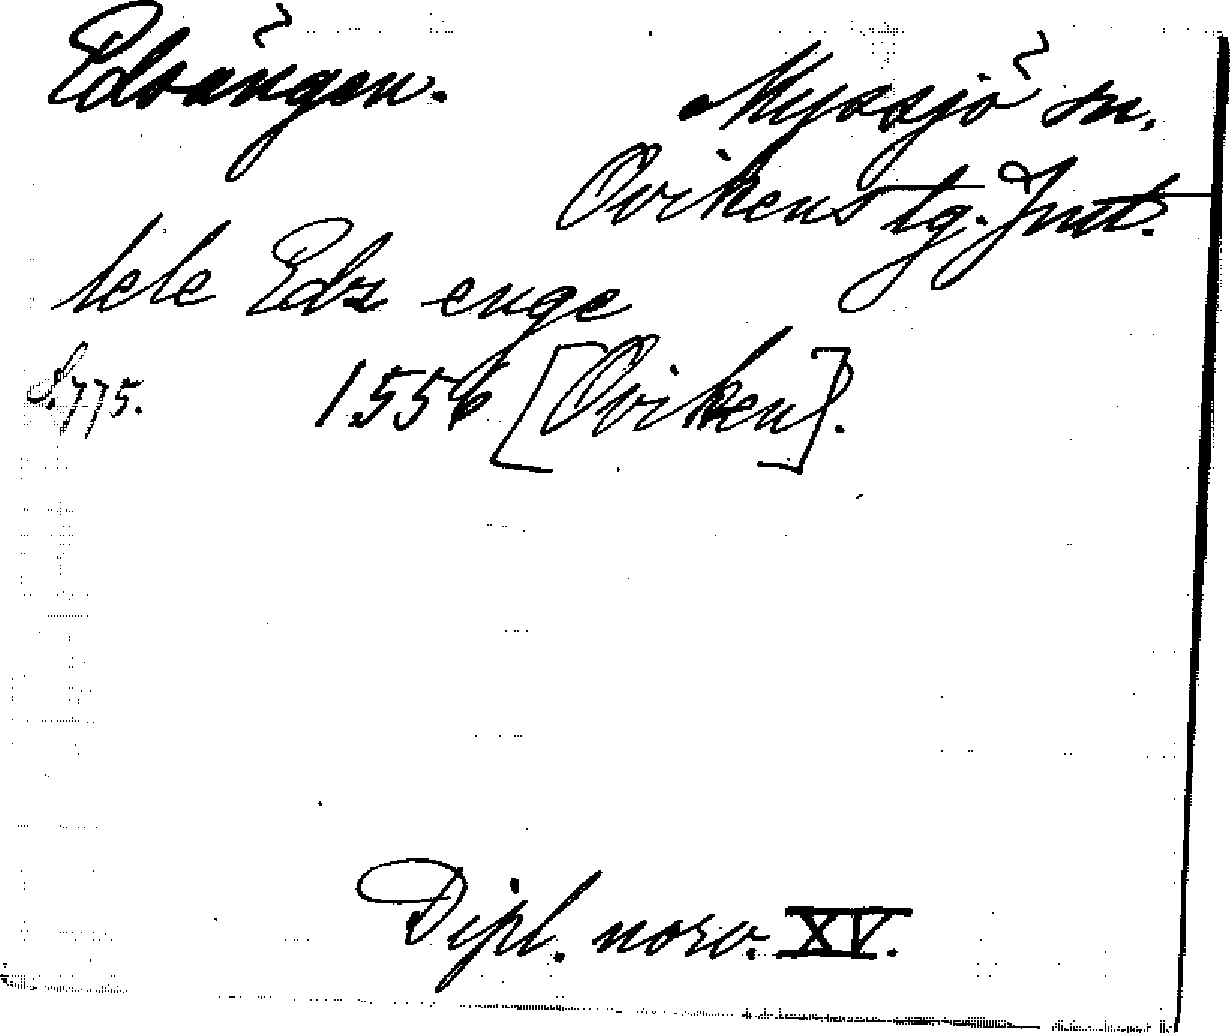 Edsängen.
Myssjö sn.
Ovikens tg. Jmt.
lele Edz enge
S. 775. 1556 [Oviken].
Dipl. norv. XV.